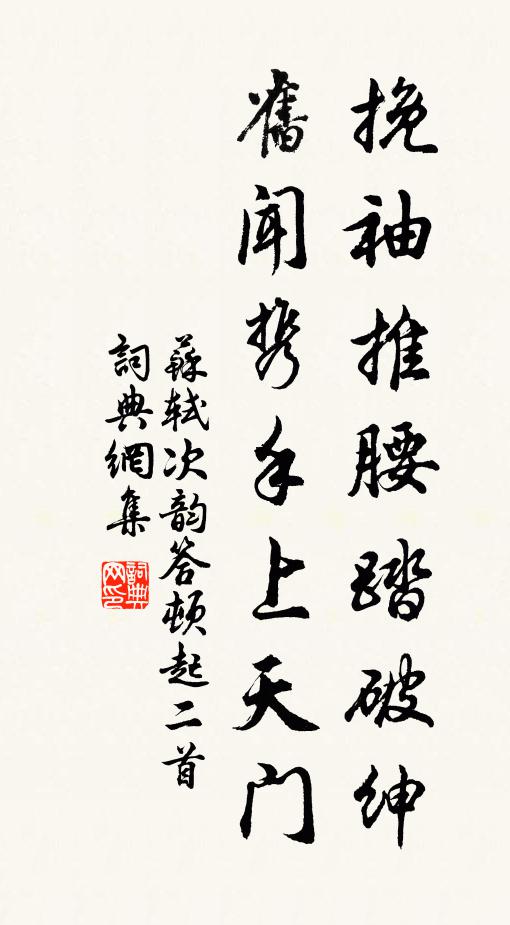 挽袖推腰踏破紳
舊闻携手上天门
蘇軾次韵答顿起二首
詞典網集
詞典网印